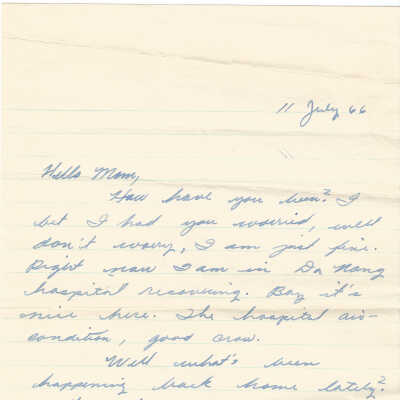 11 July 66
Hello Mom,
How have you been? I
bet I had you worried, well
don't worry, I am just fine.
Right now I am in Da Nang
hospital recovering. Boy it's
nice here. The hospital air-
condition, good chow.
Well what's been
happening back home lately?